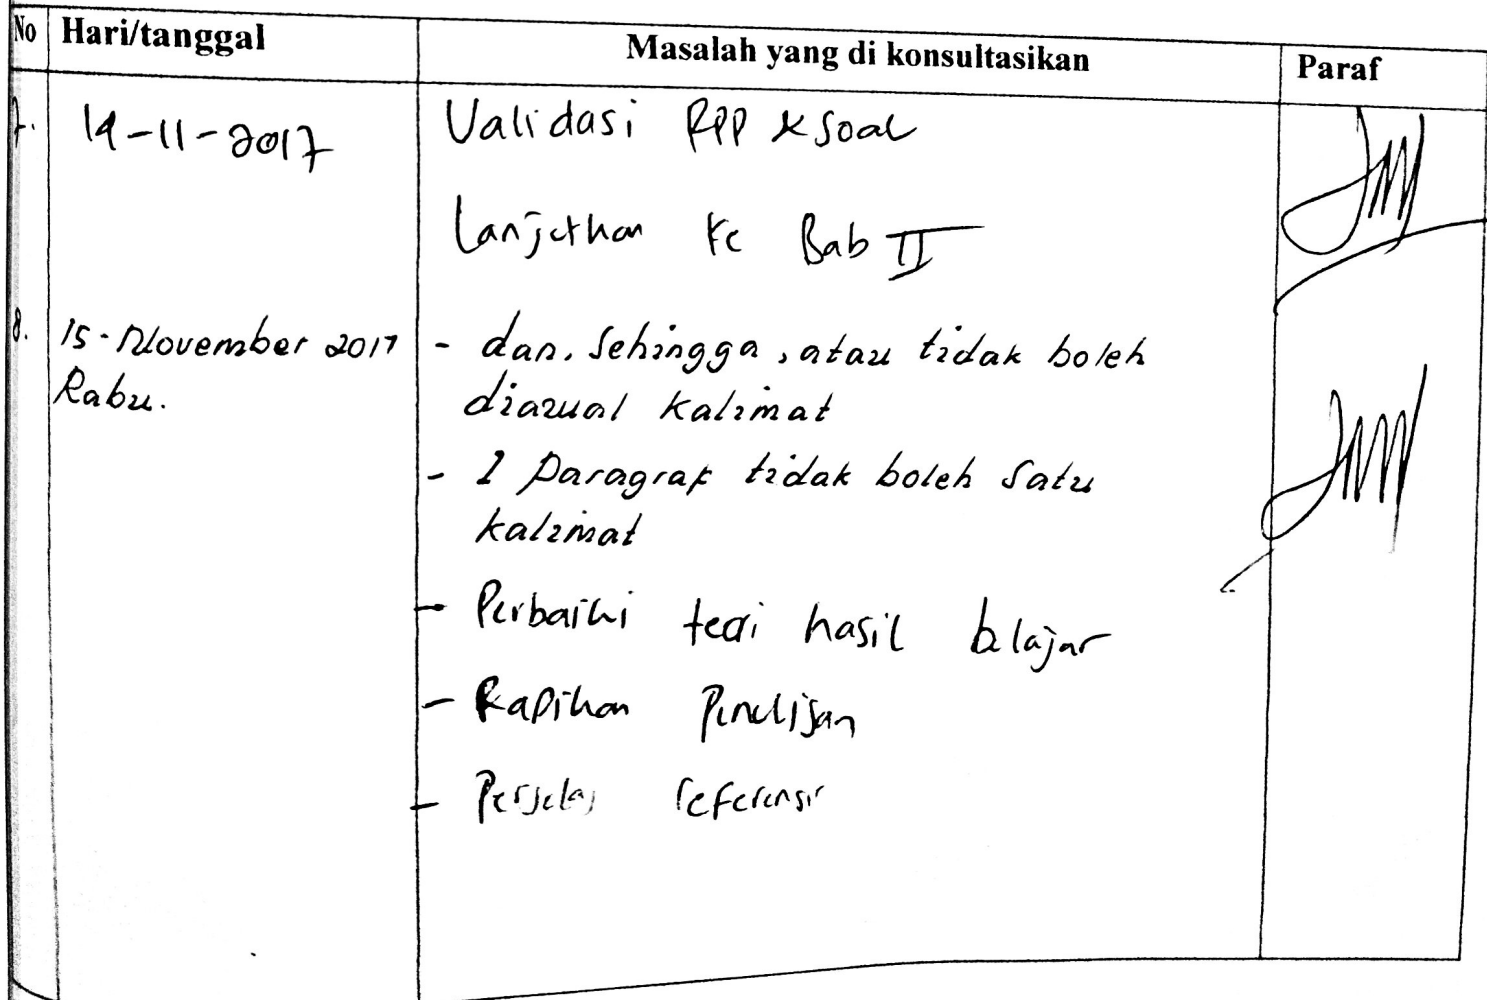 No Hari/tanggal Masalah yang di konsultasikan Paraf
7. 14-11-2017 Validasi RPP & Soal
Lanjutkan ke Bab II
8. 15-November 2017 - dan, Sehingga, atau tidak boleh
Rabu. diawal kalimat
- 1 Paragraf tidak boleh Satu
kalimat
- Perbaiki teori hasil belajar
- Rapikan Penulisan
- Perjelas referensi